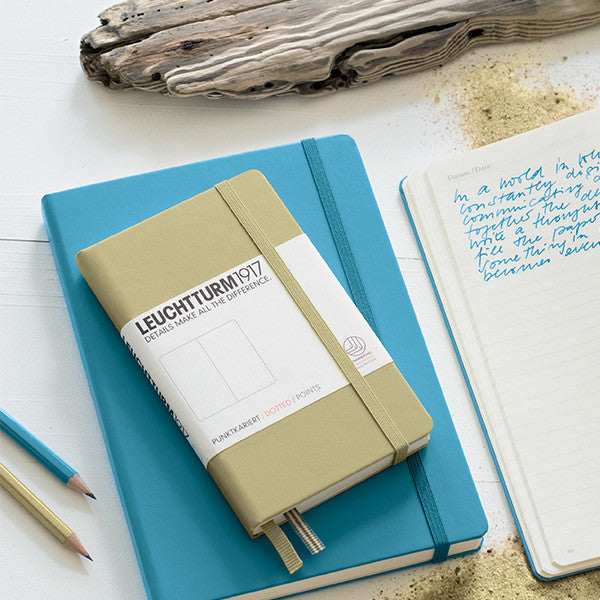 LEUCHTTURM1917
DETAILS MAKE ALL THE DIFFERENCE.
PUNKTKARIERT / DOTTED / POINTS
Datum / Date:
In a world in
constantly
communicating
together the
write a thought
fill the paper
something in
becomes